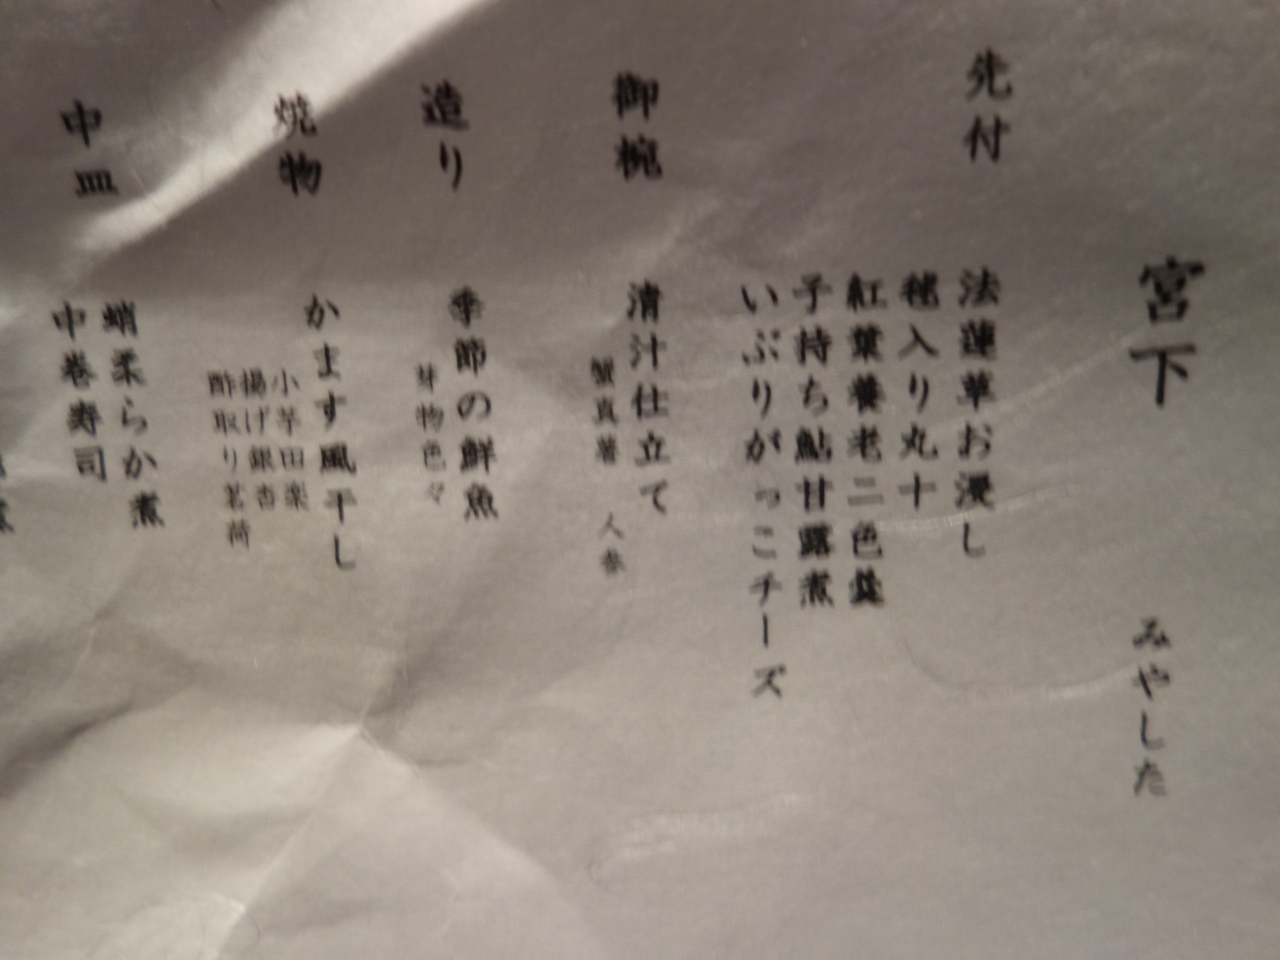 宮下 みやした
先付
法蓮草お浸し
毬入り丸十
紅葉養老二色羹
子持ち鮎甘露煮
いぶりがっこチーズ
御椀
清汁仕立て
蟹真薯 人参
造り
季節の鮮魚
芽物色々
焼物
かます風干し
小芋田楽
揚げ銀杏
酢取り茗荷
中皿
蛸柔らか煮
中巻寿司
煮